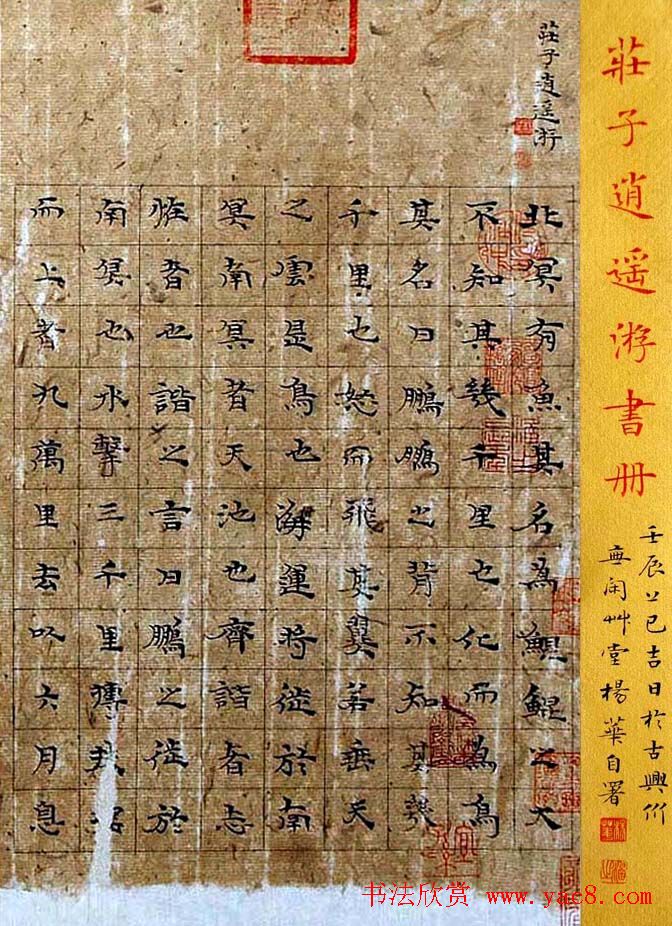 莊子逍遥游書册
壬辰乙巳吉日於古興
無闲艸堂楊華自署
莊子逍遥游
北冥有魚其名為鯤鯤之大
不知其幾千里也化而為鳥
其名曰鵬鵬之背不知其幾
千里也怒而飛其翼若垂天
之雲是鳥也海運將徙於南
冥南冥者天池也齊諧者志
怪者也諧之言曰鵬之徙於
南冥也水擊三千里摶扶搖
而上者九萬里去以六月息
书法欣赏 www.yac8.com